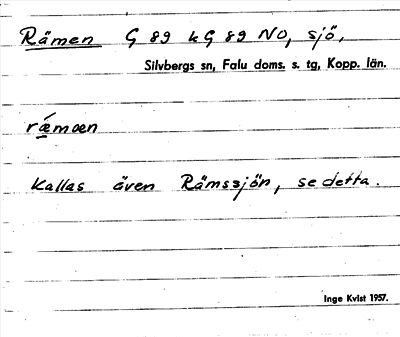 Rämen G 89 k G 89 NO, sjö,
Silvbergs sn, Falu doms. s. tg, Kopp. län.
rǽmæn
Kallas även Rämssjön, se detta.
Inge Kvist 1957.